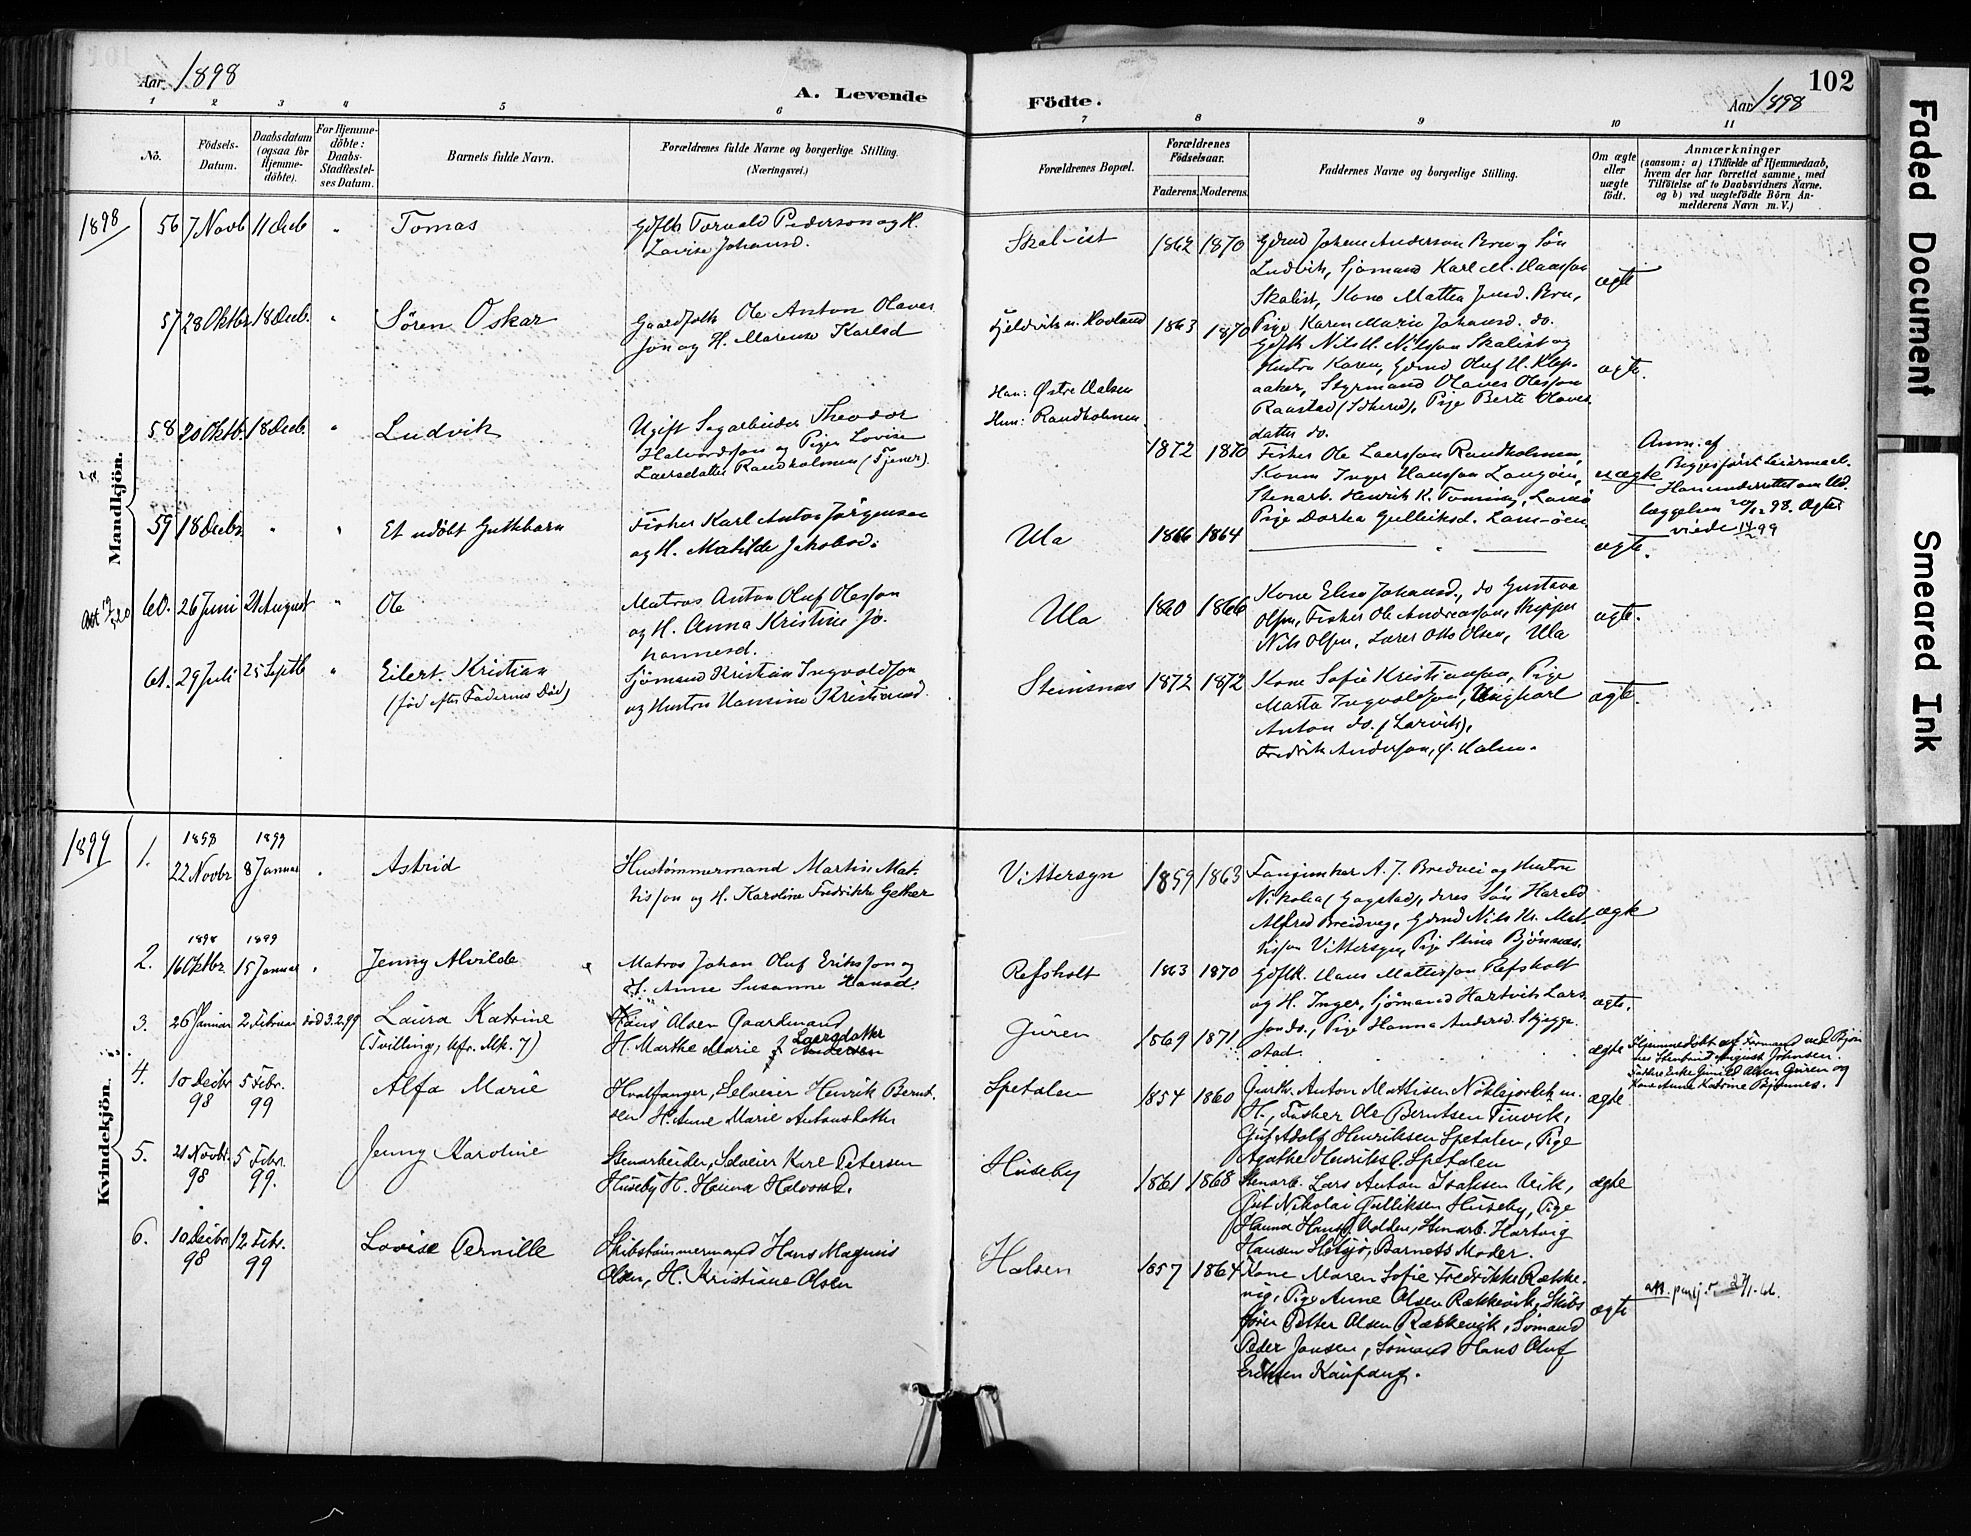 Aar 1898
A. Levende
Födte.
102
Aar 1898
1 2 3 4 5 6 7 8 9 10 11
No.
Födsels-
Datum.
Daabsdatum
(ogsaa for
Hjemme-
döbte).
For Hjemme-
döbte:
Daabs-
Stadfæstel-
ses Datum.
Barnets fulde Navn.
Forældrenes fulde Navne og borgerlige Stilling.
(Næringsvei.)
Forældrenes Bopæl.
Forældrenes
Födselsaar.
Faderens. Moderens.
Faddernes Navne og borgerlige Stilling.
Om ægte
eller
uægte
født.
Anmærkninger
(saasom: a) i Tilfælde af Hjemmedaab,
hvem der har forrettet samme, med
Tilföielse af to Daabsvidners Navne.
og b) ved uægtefödte Börn An-
melderens Navn m. V.)
Mandkjön.
1898
56 7 Novb 11 Decb " Tomas
Gdflk Torvald Pederson og H.
Lovise Johansd.
Skalist 1862 1870
Gdmd Johan Anderson Bru og Søn
Ludvik, Sjømand Karl M. Haasson
Skalist, Kone Mattea Bru,
Pige Karen Marie Johansd. do.
ægte
57 28 Oktbr 18 Decb. " Søren Oskar
Gaardfolk Ole Anton Olaves
søn og H. Marense Karlsd
Fjeldvik n. Hovland 1863 1870
Gdflk Nils H. Nilsson Skalist og
Hustru Karen, Gdmd Oluf H. Klep-
aaker, Styrmand Olaves Olesson
Raastad (Idherred), Pige Berte Olaves
datter do.
ægte.
58 20 Oktb. 18 Decb. " Ludvik
Ugift Sagarbeider Theodor
Halvordsson og Pige Lovise
Laersdatter Randholmen (Tjener)
Han: Østre Halsen
Hun: Randholmen
1872 1870
Fisker Ole Laersson Randholmen,
Konen Inger Hansson Langøen,
Stenarb. Henrik K. Lamø
Pige Dorthea Gulleiksd. Lamøen
uægte
Anm. af
Begges første Leiermaal.
Han underrettet om Ud-
læggelsen 20/12 98. Ægte-
viede 99
59 18 Decbr " " Et udöbt Guttebarn
Fisker Karl Anton Jørgensen
og H. Matilde Jakobsd.
Ula 1866 1864 " ægte.
60. 26 Juni 21 August " Ole
Matros Anton Oluf Olesson
og H. Anna Kristine Jo-
hannesd.
Ula 1860 1866
Kone Elise Johansd., do Gustava
Olsen, Fisker Ole Andreasson, Skipper
Nils Olsen, Lærer Otto Olsen, Ula
ægte.
61. 29 Juli 25 Septb " Eilert Kristian
(fød efter Faderens Død)
Sjömand Kristian Ingvoldson
og Hustru Hansine Kristiansd.
Steinsnæs 1872 1872
Kone Sofie Kristiansen, Pige
Marta Ingvoldson, Ungkarl
Anton do. (Larvik),
Fredrik Anderson, Ø. Halsen.
ægte.
Kvindekjön.
1899
1. 1898 22 Novbr 1899 8 Januar " Astrid
Hustömmermand Martin Mat-
hisson og H. Karoline Fredrikke Gether
Vittersøn 1859 1863
Fangvogter A. J. Bredvei og Hustru
Nikolea, Gogstad, deres Søn Harald
Alfred Breidveg, Gdmd Nils M. Mat-
hisson Vittersøn, Pige Stina Bjønnes.
ægte
2. 1898 16 Oktbr. 1899 15 Januar " Jenny Alvilde
Matros Johan Oluf Eriksson og
H. Anne Susanne Hansd.
Refsholt 1863 1870
Gdflk. Hans Mattisson Refsholt
og H. Inger, Sjömand Hartvik Lars-
son do., Pige Hanna Andersd. Skjegge-
stad.
ægte.
3. 26 Januar 2 Februar död 3.2.99 Laura Katrine
(Tvilling, kfr. Mk. 7)
Hans Olsen Gaardmand
H. Marthe Marie Andersen Laersdatter
Guren 1869 1871.
ægte
Hjemmedöbt af Formand ved Bjön-
nes Stenbrud August Johnsen.
Faddere Enke Gunild Olsen Guren og
Kone Anne Katrine Bjönnes.
4. 10 Decbr 98 5 Febr. 99 Alfa Marie
Hvalfanger, Selveier Henrik Bernt-
sen H. Anne Marie Antonsdatter
Spetalen 1854 1860
Gaardbr. Anton Mathisen Nöklegaard m.
H., Fisker Ole Berntsen Tinvik,
Gut Adolf Henriksen Spetalen, Pige
Agathe Henriks d. Spetalen
ægte
5. 21 Novbr. 98 5 Febr. 99. Jenny Karoline
Stenarbeider, Selveier Karl Petersen
Huseby H. Hanna Halvorsd.
Huseby 1861 1868
Stenarb. Lars Anton Isaksen Vik,
Gut Nikolai Gulliksen Huseby, Pige
Hanna Hansd. Volden, Stenarb. Hartvig
Hansen Hetsjø, Barnets Moder.
ægte
6. 10 Decbr 98 12 Febr. 99 Lovise Pernille
Skibstömmermand Hans Magnus
Olsen, H. Kristiane Olsen
Halsen 1857 1864
Kone Maren Sofie Fredrikke Række-
vig, Pige Anne Olsen Rækkevik, Skibs
förer Petter Olsen Rækkevik, Sömand
Peder Jansen, Sömand Hans Oluf
Eriksen Kaupang.
ægte
Faded Document
Smeared Ink